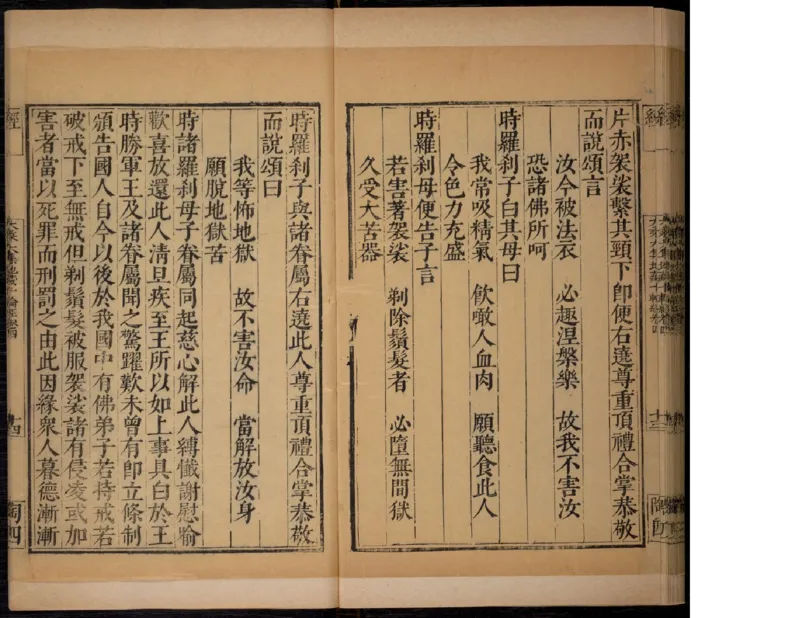 片赤袈裟繫其頸下即便右遶尊重頂禮合掌恭敬
而說頌言
汝今被法衣　必趣涅槃樂　故我不害汝
恐諸佛所呵
時羅刹子白其母曰
我常吸精氣　飲噉人血肉　願聽食此人
令色力充盛
時羅刹母便告子言
若害著袈裟　剃除鬚髮者　必墮無間獄
久受大苦器
時羅刹子與諸眷屬右遶此人尊重頂禮合掌恭敬
而說頌曰
我等怖地獄　故不害汝命　當解放汝身
願脫地獄苦
時諸羅刹母子眷屬同起慈心解此人縛懺謝慰喻
歡喜放還此人清旦疾至王所以如上事具白於王
時勝軍王及諸眷屬聞之驚躍歎未曾有即立條制
頒告國人自今以後於我國中有佛弟子若持戒若
破戒下至無戒但剃鬚髮被服袈裟諸有侵凌或加
害者當以死罪而刑罰之由此因緣衆人慕德漸漸
經
十四
陶四